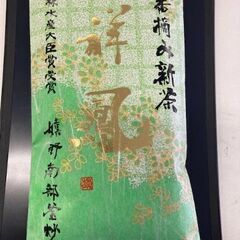 番摘み新茶
祥風
農林水産大臣賞受賞
嬉野南部釜炒